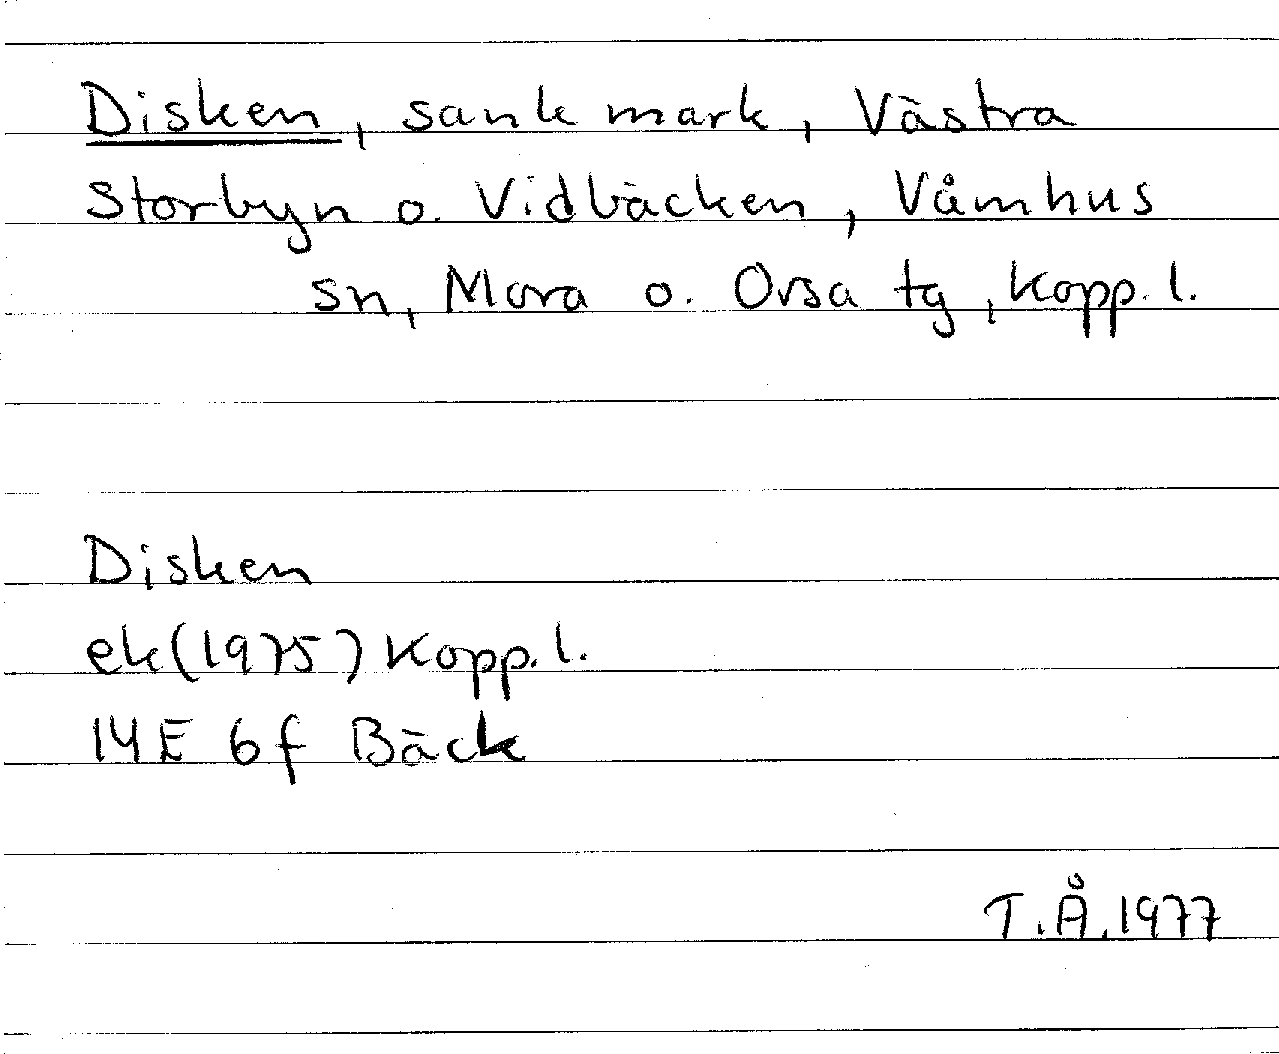 Disken, sank mark, Västra
Storbyn o. Vidbäcken, Våmhus
sn, Mora o. Orsa tg, Kopp. l.
Disken
ek (1975) Kopp. l.
14E 6f Bäck
T.Å. 1977